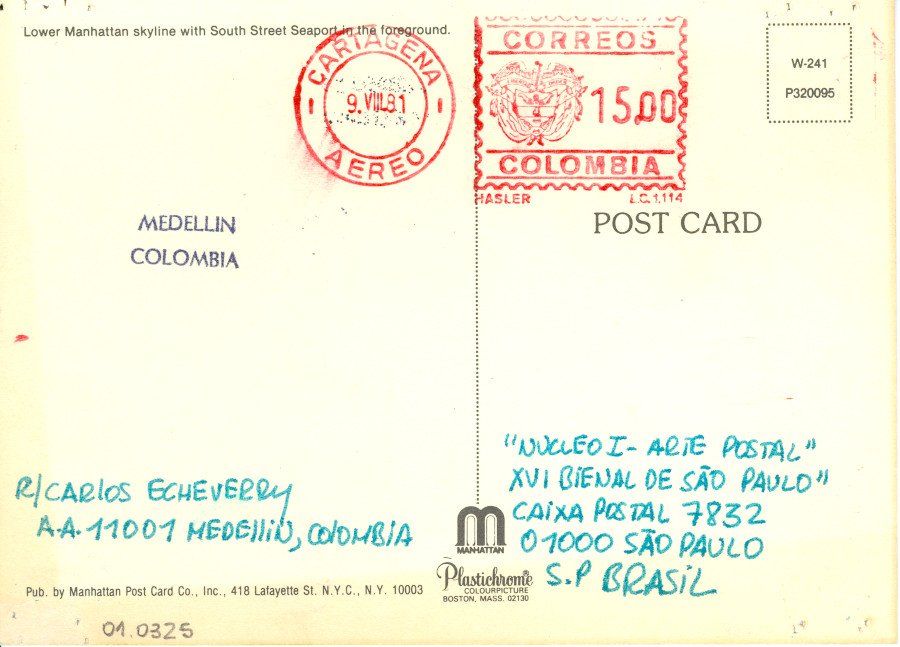 Lower Manhattan skyline with South Street Seaport in the foreground.
CARTAGENA
9.VIII.81
AEREO
CORREOS
15,00
COLOMBIA
HASLER L.C.1.114
W-241
P320095
POST CARD
MEDELLIN
COLOMBIA
"NUCLEO I - ARTE POSTAL"
XVI BIENAL DE SÃO PAULO"
CAIXA POSTAL 7832
01000 SÃO PAULO
S.P BRASIL
R/CARLOS ECHEVERRY
A.A. 11001 MEDELLIN, COLOMBIA
m
MANHATTAN
Plastichrome®
COLOURPICTURE
BOSTON, MASS. 02130
Pub. by Manhattan Post Card Co., Inc., 418 Lafayette St. N.Y.C., N.Y. 10003
01.0325